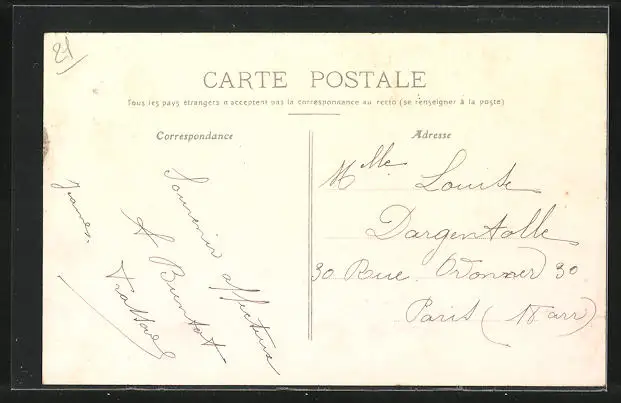 21)
CARTE POSTALE
Tous les pays étrangers n'acceptent pas la correspondance au recto (se renseigner à la poste)
Correspondance
Souvenir affectueux
A Bientot
Adresse
Mlle Louise
Dargentolle
30 Rue Ordonner 30
Paris (